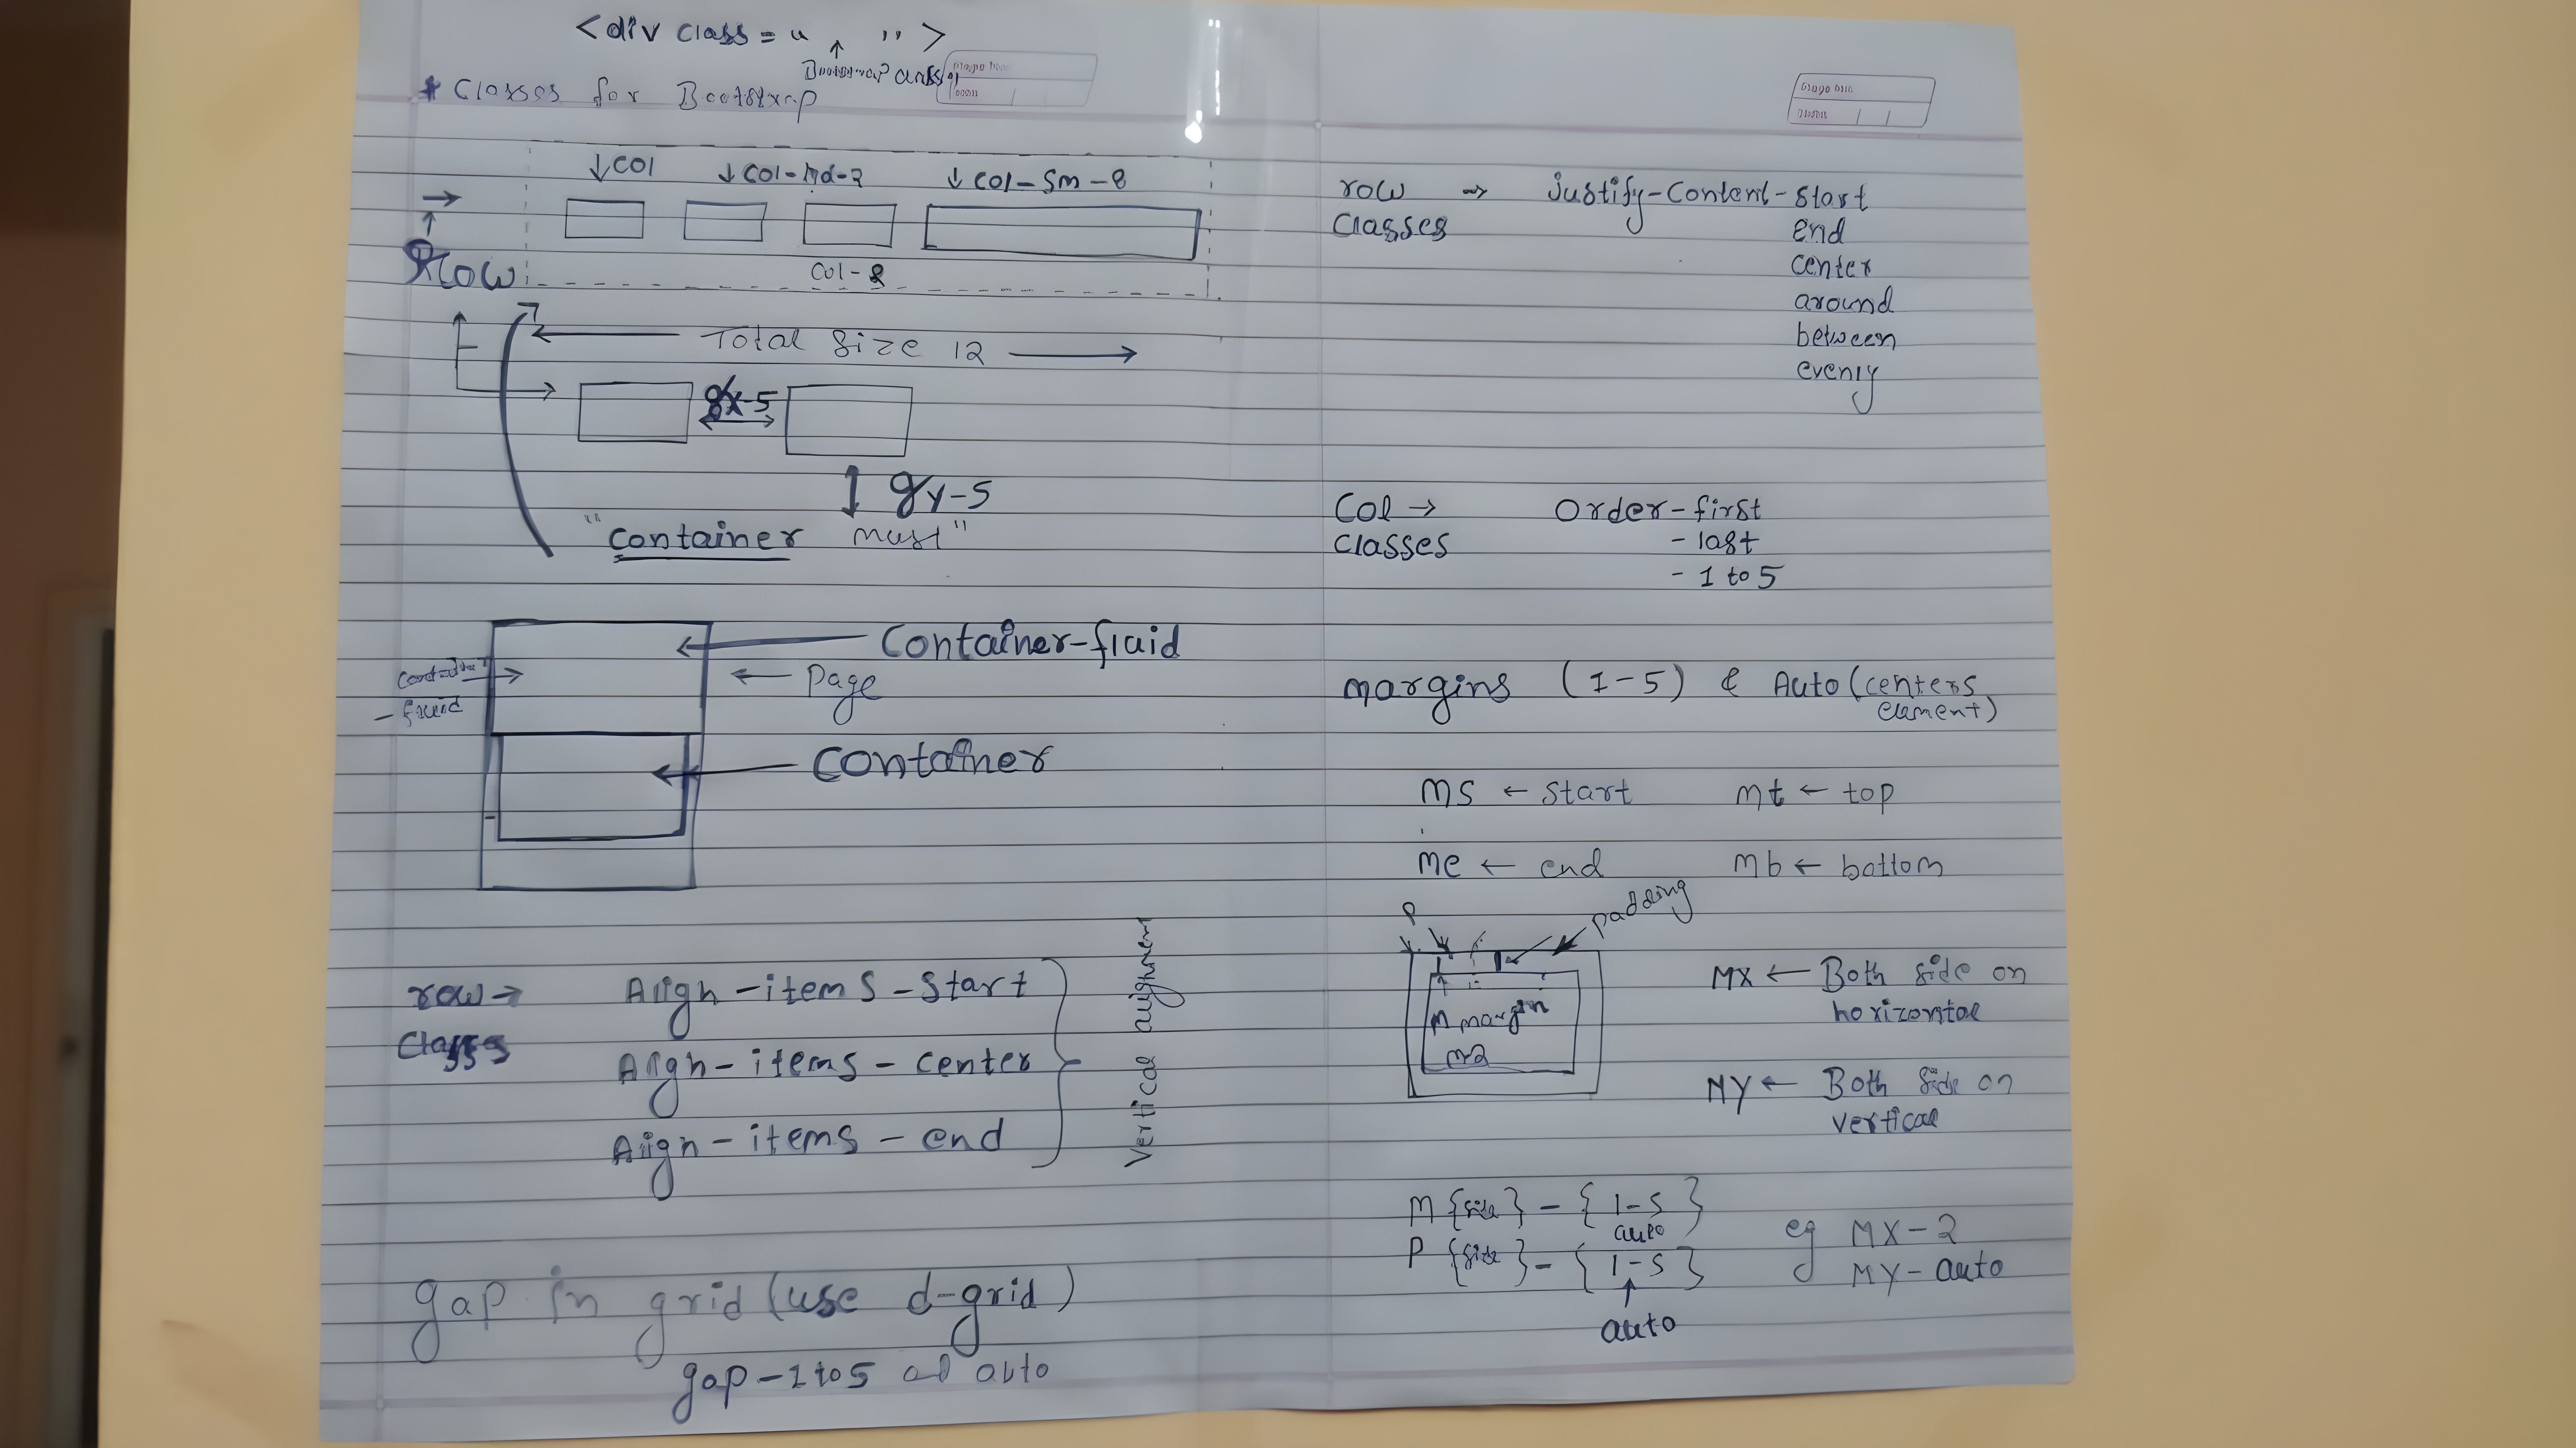 <div class = " " >
↑
Bootstrap class
* Classes for Bootstrap
↓ col ↓ col-md-2 ↓ col-sm-8
→
↑
Row
col-2
← Total Size 12 →
gx-5
↕ gy-5
"container must"
← Container-fluid
→
- fluid
← Page
← Container
row → Align-items-start
Classes Align-items-center
Align-items-end
Vertical alignment
gap in grid (use d-grid)
gap-1 to 5 ad auto
row → justify-content-start
Classes end
center
around
between
evenly
Col → Order-first
classes - last
- 1 to 5
margins (1-5) & Auto (centers
element)
ms ← start mt ← top
me ← end mb ← bottom
P
padding
margin
m-2
MX ← Both side on
horizontal
MY ← Both side on
vertical
M {side} - { 1-5 }
auto
P {side} - { 1-5 }
↑
auto
eg MX-2
MY-auto